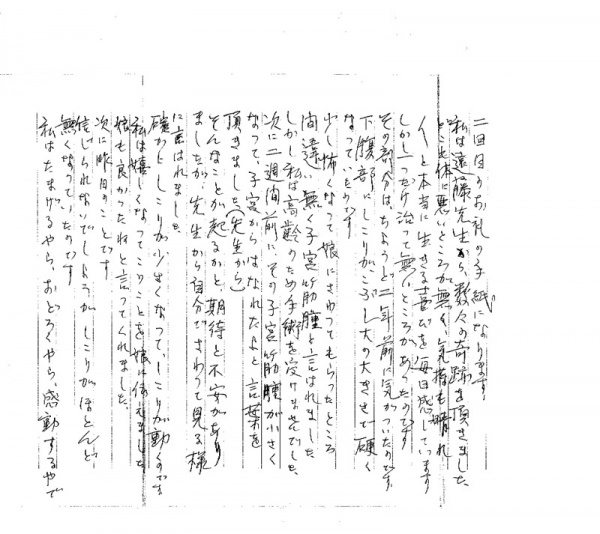 二回目のお礼の手紙になります
私は遠藤先生から、数々の奇跡を頂きました。
どこも体に悪いところが無く、気持も晴れ
本当に生きる喜びを毎日感じています
しかし一つだけ治って無いところがあったのです
その部分はちょうど二年前に気がついたのです。
下腹部にしこりが、こぶし大の大きさで硬く
なっていたのです
少し怖くなって娘にさわってもらったところ
間違い無く子宮筋腫と言はれました
しかし私は高齢のため手術を受けませんでした。
次に二週間前に、その子宮筋腫が小さく
なって、子宮からはなれたよと言葉を
頂きました（先生から）
そんなことが起るかと、期待と不安があり
ましたが、先生から自分でさわって見る様
に言はれました。
確かにしこりが少さくなって、しこりが動くのです
私は嬉しくなってこのことを娘に伝えました
娘も良かったねと言ってくれました。
次に昨日のことです
信じられないでしょうがしこりがほとんど、
無くなっていたのです
私はたまげるやら、おどろくやら、感動するやで